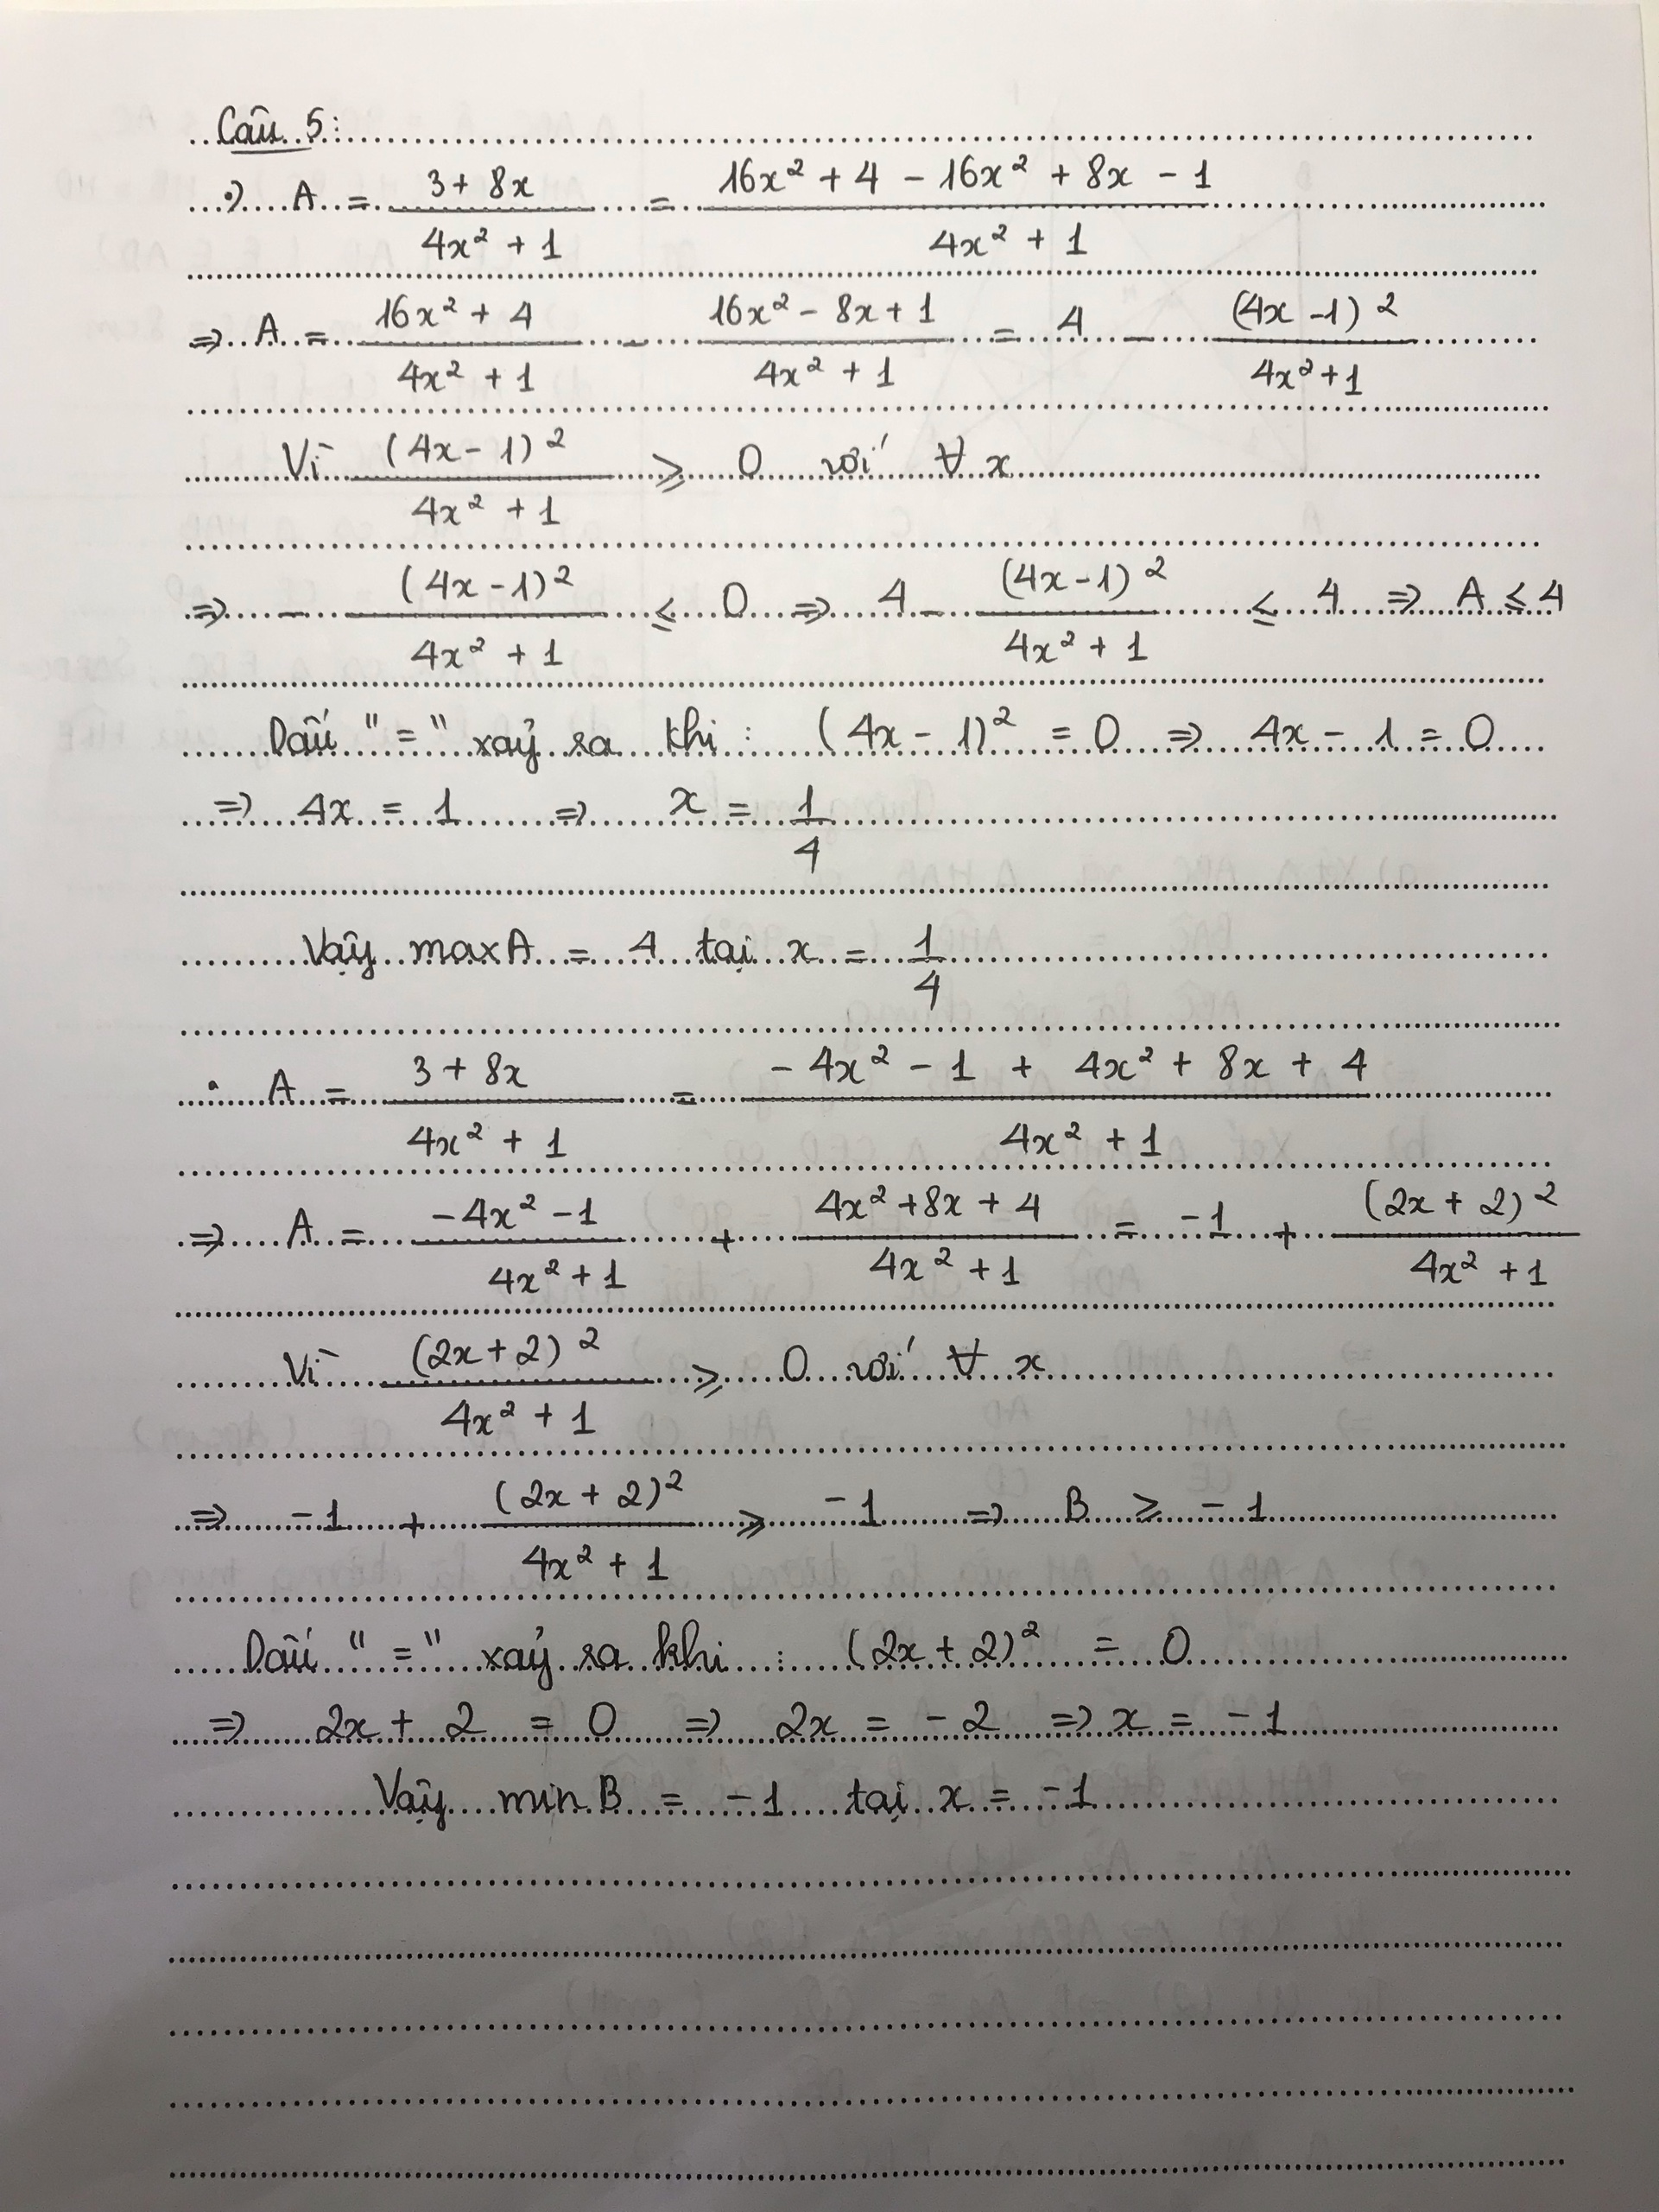 Câu 5:
•) A = \frac{3 + 8x}{4x² + 1} = \frac{16x² + 4 - 16x² + 8x - 1}{4x² + 1}
=> A = \frac{16x² + 4}{4x² + 1} - \frac{16x² - 8x + 1}{4x² + 1} = 4 - \frac{(4x - 1)²}{4x² + 1}
Vì \frac{(4x - 1)²}{4x² + 1} ⩾ 0 với ∀ x
=> - \frac{(4x - 1)²}{4x² + 1} ≤ 0 => 4 - \frac{(4x - 1)²}{4x² + 1} ≤ 4 => A ≤ 4
Dấu "=" xảy ra khi : (4x - 1)² = 0 => 4x - 1 = 0
=> 4x = 1 => x = \frac{1}{4}
Vậy maxA = 4 tại x = \frac{1}{4}
• A = \frac{3 + 8x}{4x² + 1} = \frac{- 4x² - 1 + 4x² + 8x + 4}{4x² + 1}
=> A = \frac{-4x² - 1}{4x² + 1} + \frac{4x² + 8x + 4}{4x² + 1} = -1 + \frac{(2x + 2)²}{4x² + 1}
Vì \frac{(2x + 2)²}{4x² + 1} ⩾ 0 với ∀ x
=> -1 + \frac{(2x + 2)²}{4x² + 1} ⩾ -1 => B ⩾ -1
Dấu "=" xảy ra khi : (2x + 2)² = 0
=> 2x + 2 = 0 => 2x = -2 => x = -1
Vậy min B = -1 tại x = -1